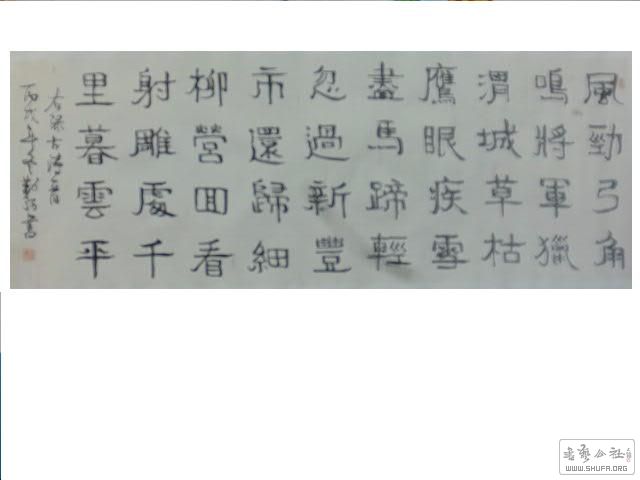 風勁弓角
鳴將軍獵
渭城草枯
鷹眼疾雪
盡馬蹄輕
忽過新豐
市還歸細
柳營回看
射雕處千
里暮雲平
右录古诗一首
丙戌年冬書
书艺公社
WWW.SHUFA.ORG